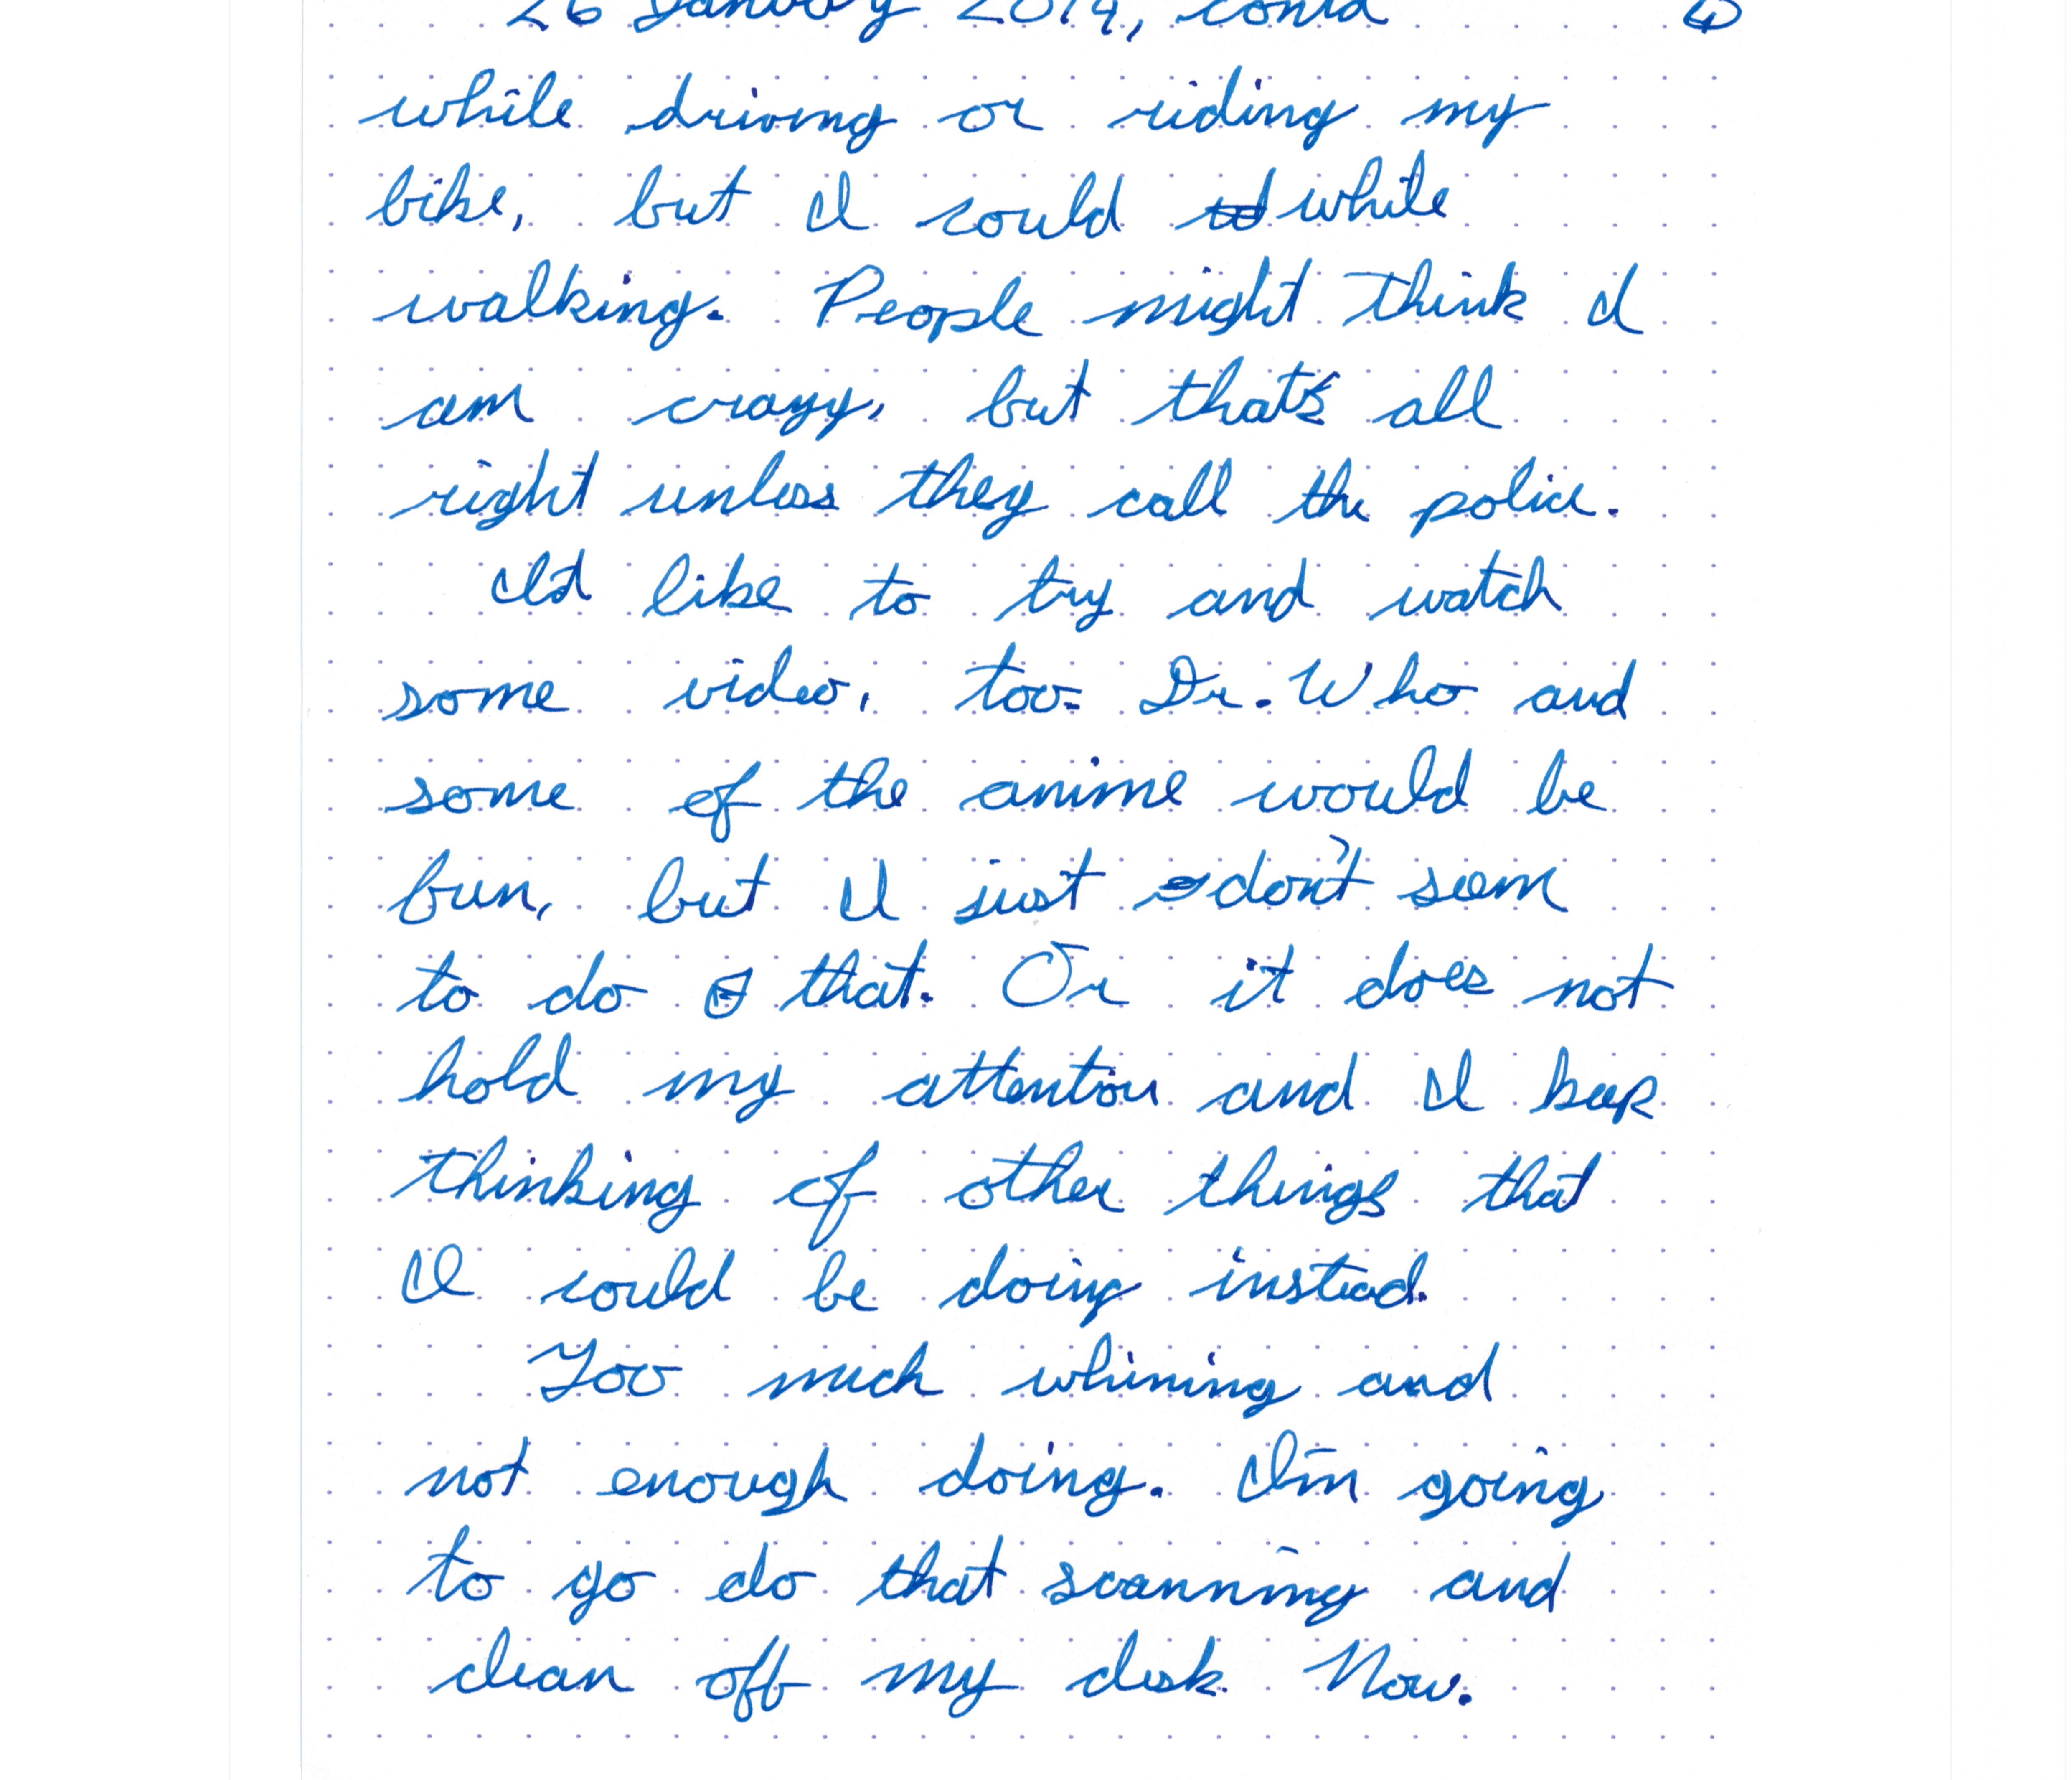 26 January 2019, cont'd 4
while driving or riding my
bike, but I could while
walking. People might think I
am crazy, but that's all
right unless they call the police.
I'd like to try and watch
some video, too. Dr. Who and
some of the anime would be
fun, but I just don't seem
to do that. Or it does not
hold my attention and I keep
thinking of other things that
I could be doing instead.
Too much whining and
not enough doing. I'm going
to go do that scanning and
clean off my desk. Now.